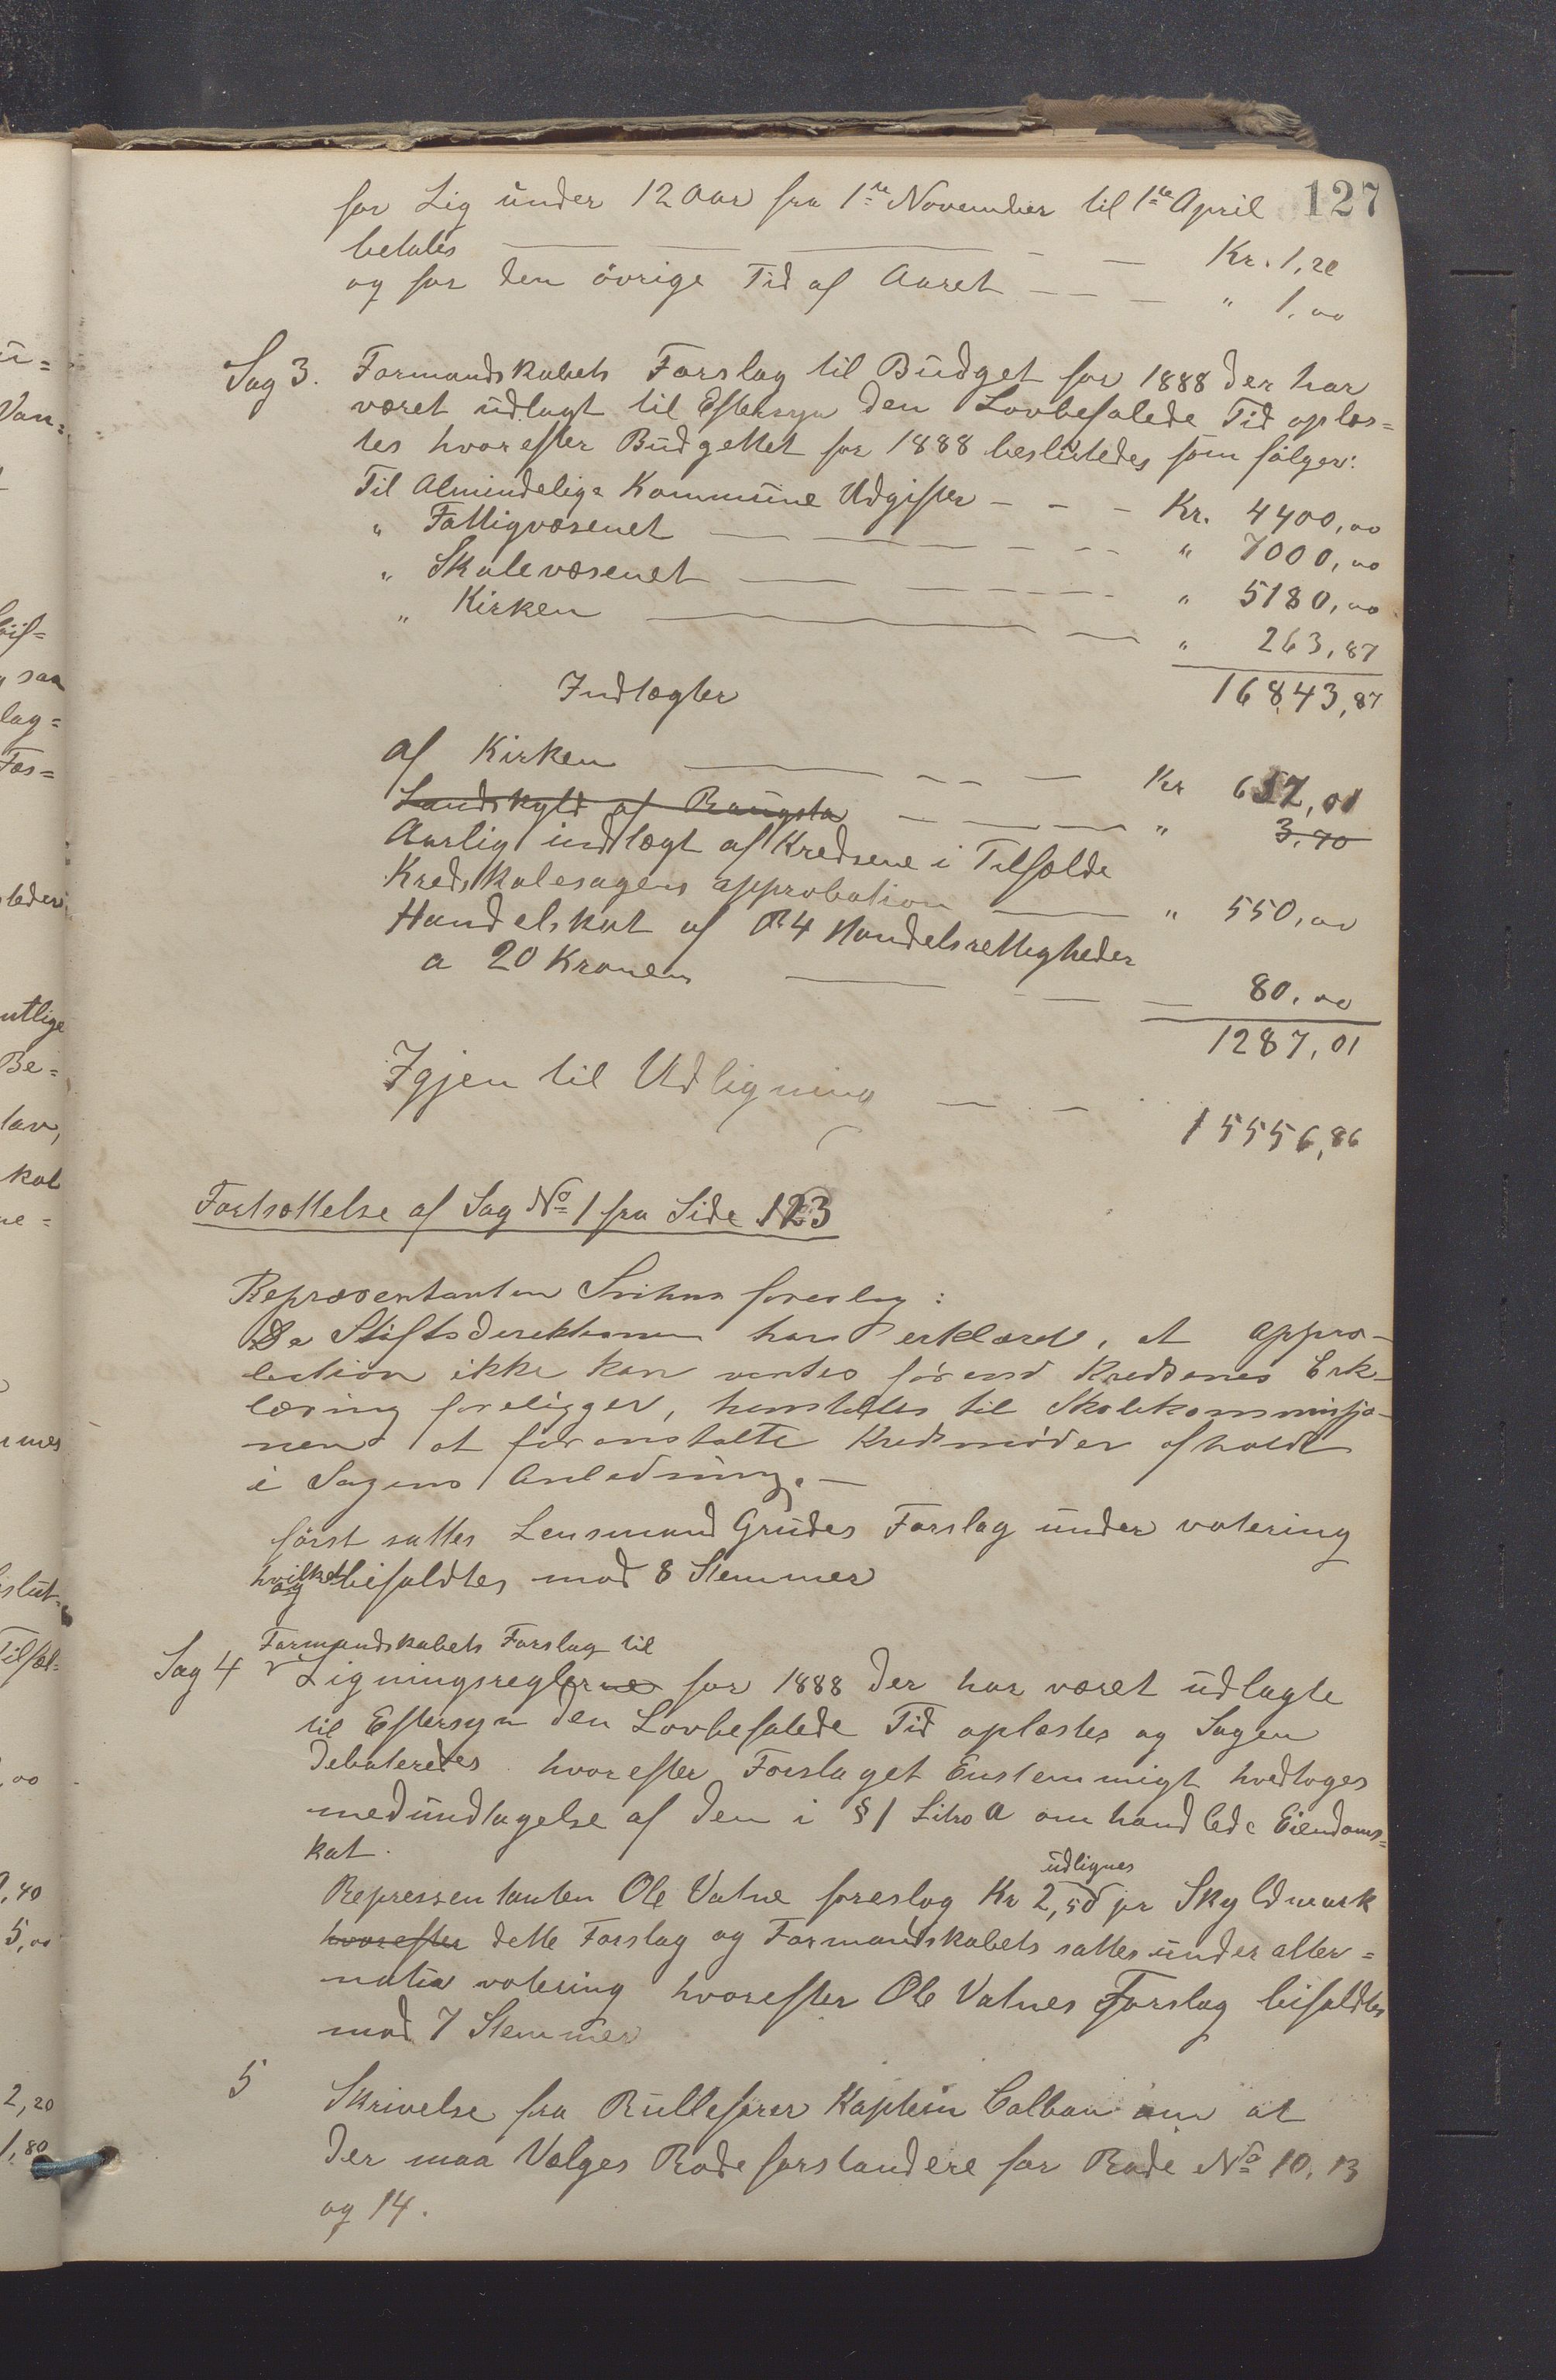 127
for Lig under 12 Aar fra 1ste November til 1ste April
betales — — — — — Kr. 1,20
og for den övrige Tid af Aaret — — — " 1,00
Sag 3. Formandskabets Forslag til Budget for 1888 der har
været udlagt til Eftersyn den Lovbefalede Tid oplæs=
tes hvorefter Budgettet for 1888 beslutedes som følger:
Til Almindelige Kommune Udgifter — — — Kr. 4400,00
" Fattigvæsenet — — — — — " 7000,00
" Skolevæsenet — — — — — " 5180,00
" Kirken — — " 263,87
16843,87
Indtægter
af Kirken — — — — Kr 657,01
Landskyld af — — — " 3,70
Aarlig indtægt af Kredsene i Tilfælde
Kredsskolesagens approbation — " 550,00
Handelskat af 4 Handelsrettigheder
a 20 Kroner — — — — 80,00
1287,01
Igjen til Udligning — — 15556,86
Fortsættelse af Sag No 1 fra Side 123
Repræsentanten foreslog:
Da Stiftsdirektionen har erklæret, at appro-
bation ikke kan ventes förend Kredsenes Erk-
læring foreligger, henstilles til Skolekommissjo-
nen at foranstalte Kredsmöder afholdt
i Sagens Anledning. —
først sattes Lensmand Grudes Forslag under votering
hvilket og bifaldtes mod 8 Stemmer
Formandskabets Forslag til
Sag 4 Ligningsreglerne for 1888 der har været udlagte
til Eftersyn den Lovbefalede Tid oplæstes og Sagen
Debateredes hvorefter Forslaget Enstemmigt hvedtoges
med undtagelse af den i § 1 Litra A om handlede Eiendoms=
kat.
udlignes
Repressentanten Ole Vatne foreslog Kr 2,50 pr Skyldmark
hvorefter dette Forslag og Formandskabets sattes under alter=
nativ votering hvorefter Ole Vatnes Forslag bifaldtes
mod 7 Stemmer
5 Skrivelse fra Rullefører Kaptein Calban om at
der maa Vælges Rodeforstandere for Rode No 10, 13
og 14.